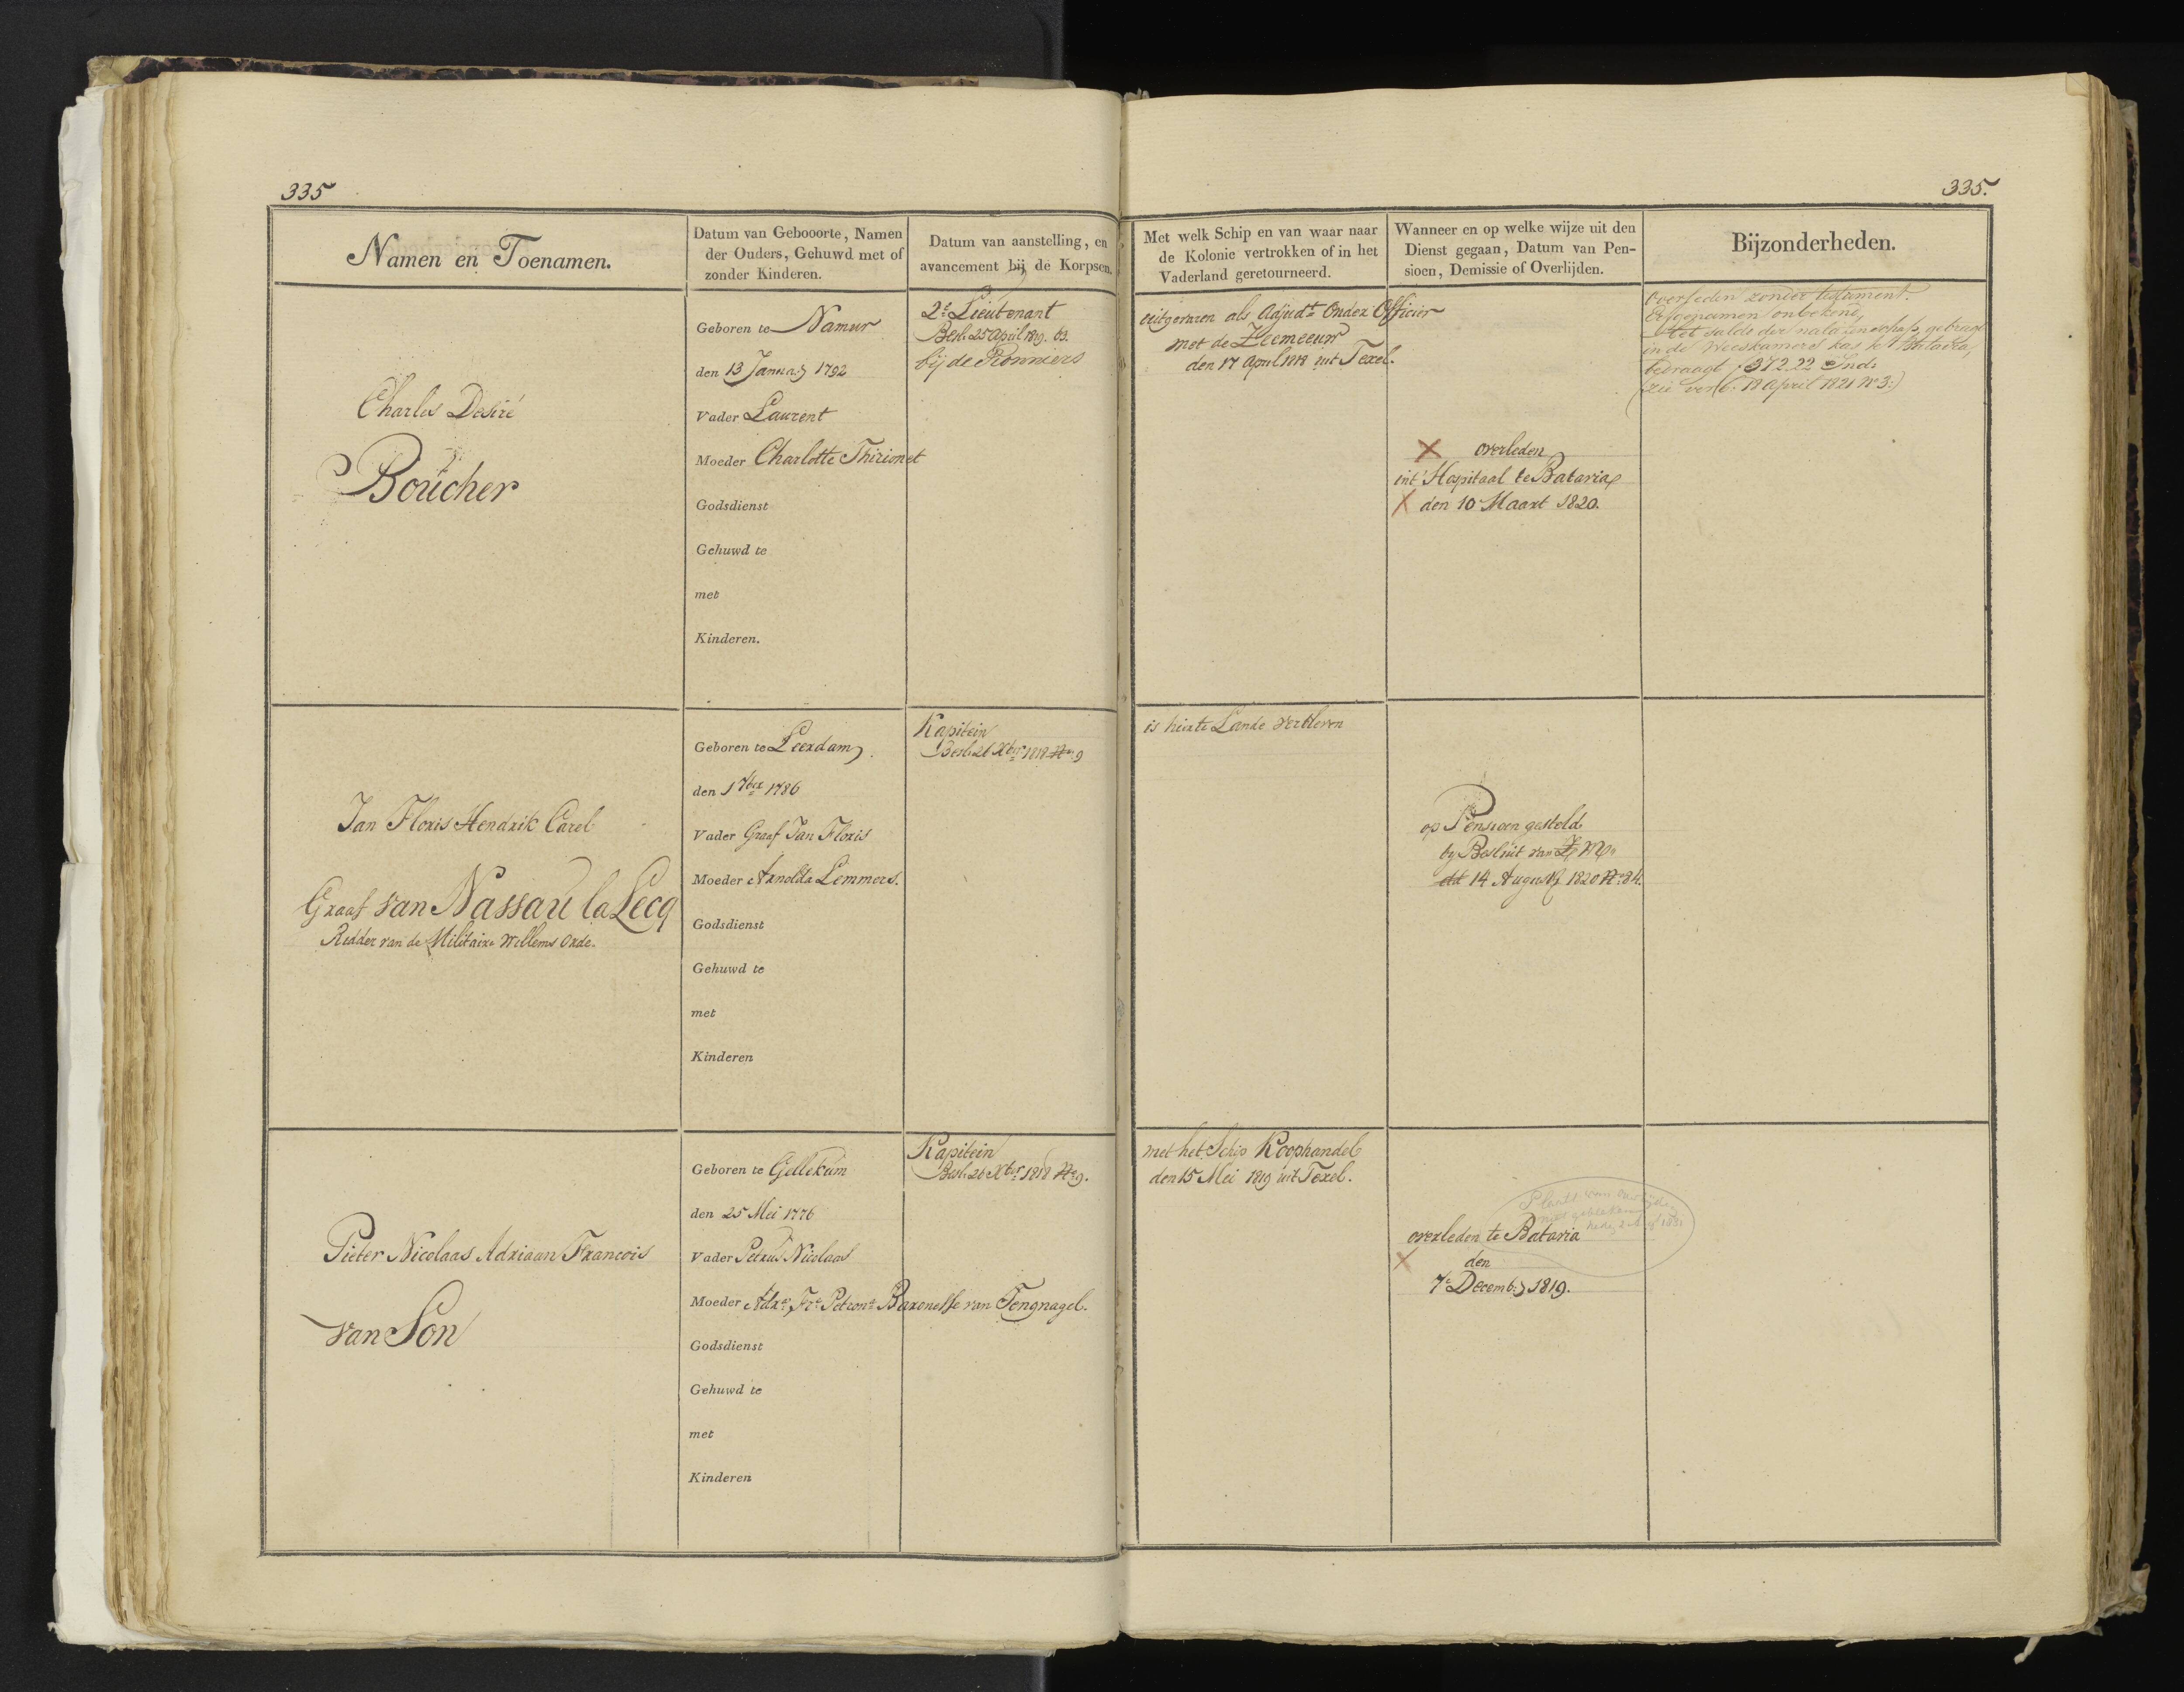 335
335.
Namen en Toenamen.
Datum van Gebooorte, Namen
der Ouders, Gehuwd met of
zonder Kinderen.
Datum van aanstelling, en
avancement bij de Korpsen.
Met welk Schip en van waar naar
de Kolonie vertrokken of in het
Vaderland geretourneerd.
Wanneer en op welke wijze uit den
Dienst gegaan, Datum van Pen-
sioen, Demissie of Overlijden.
Bijzonderheden.
Charles Desiré
Boucher
Geboren te Namur
den 13 Januarij 1792
Vader Laurent
Moeder Charlotte Thirionet
Godsdienst
Gehuwd te
met
Kinderen.
2e Lieutenant
Besl: 25 April 1819. 63.
bij de Pionniers
uitgevaren als Adjudt Onder Officier
met de Zeemeeuw
den 17 April 1818 uit Texel.
X overleden
int Hospitaal te Batavia
X den 10 Maart 1820.
Overleden zonder testament.
Erfgenamen onbekend,
Het saldo der nalatenschap, gebragt
in de Weeskamers kas te Batavia,
bedraagt f 372.22 Ind:
(zie verb: 19 April 1821 No 3.)
Jan Floris Hendrik Carel
Graaf van Nassau la Lecq
Ridder van de Militaire Willems Orde.
Geboren te Leerdam
den 1 7ber 1786
Vader Graaf Jan Floris
Moeder Arnolda Lemmers.
Godsdienst
Gehuwd te
met
Kinderen
Kapitein
Besl: 26 Xber 1818 No 9
is hier te Lande verbleven
op Pensioen gesteld
by Besluit van Z M
dd 14 Augustus 1820 No 84.
Pieter Nicolaas Adriaan Francois
van Son
Geboren te Gellekum
den 25 Mei 1776
Vader Petrus Nicolaas
Moeder Adra Fra Petrona Baronesse van Tengnagel.
Godsdienst
Gehuwd te
met
Kinderen
Kapitein
Besl: 26 Xber 1818 No 9.
met het Schip Koophandel
den 15 Mei 1819 uit Texel.
Plaats van overlijden
niet gebleken
overleden te Batavia
X den
7e Decemb: 1819.